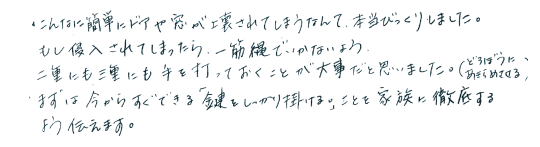 ・こんなに簡単にドアや窓が工壊されてしまうなんて、本当びっくりしました。
もし侵入されてしまったら、一筋縄でいかないよう、
二重にも三重にも手を打っておくことが大事だと思いました。(どろぼうに、あきらめさせる、
まずは今からすぐできる「鍵をしっかり掛ける。」ことを家族に徹底する
よう伝えます。